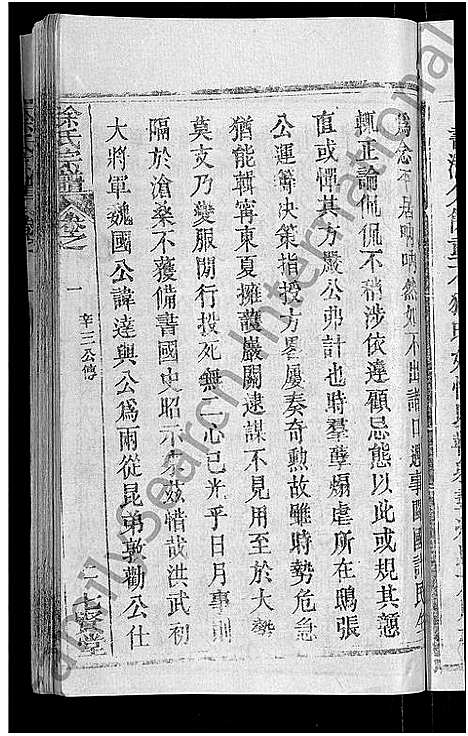 爲念平居吶吶然如不出諸口遇事
輒正論侃侃不稍涉依違顧忌態以此或規其戇
直或憚其方嚴公弗計也時羣孽煽虐所在鴟張
公運籌決策指授方畧屢奏奇勲故雖時勢危急
猶能輯寧東夏擁護嚴關逮謀不見用至於大勢
莫支乃變服閒行投死無二心已光乎日月事則
隔於滄桑不獲備書國史昭示來茲惜哉洪武初
大將軍魏國公諱達與公爲兩從昆弟敦勸公仕
徐氏宗譜
卷之一
辛三公傳
二
七賢堂
FamilySearch International